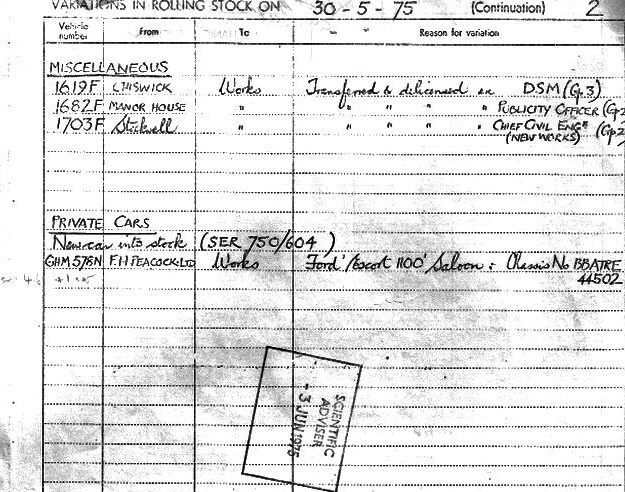 VARIATIONS IN ROLLING STOCK ON 30 - 5 - 75 (Continuation) 2
Vehicle number From To Reason for variation
MISCELLANEOUS
1619F CHISWICK Works Transferred & delicensed ex DSM (Gp.3)
1682F MANOR HOUSE " " " " " PUBLICITY OFFICER (Gp2
1703F Stockwell " " " " " CHIEF CIVIL ENGR (Gp2
(NEW WORKS)
PRIVATE CARS
New car into stock (SER 750/604)
GHM 576N F.H PEACOCK LTD Works 'Ford' 'Escort 1100' Saloon : Chassis No BBATRE
44502
SCIENTIFIC
ADVISER
- 3 JUN 1975